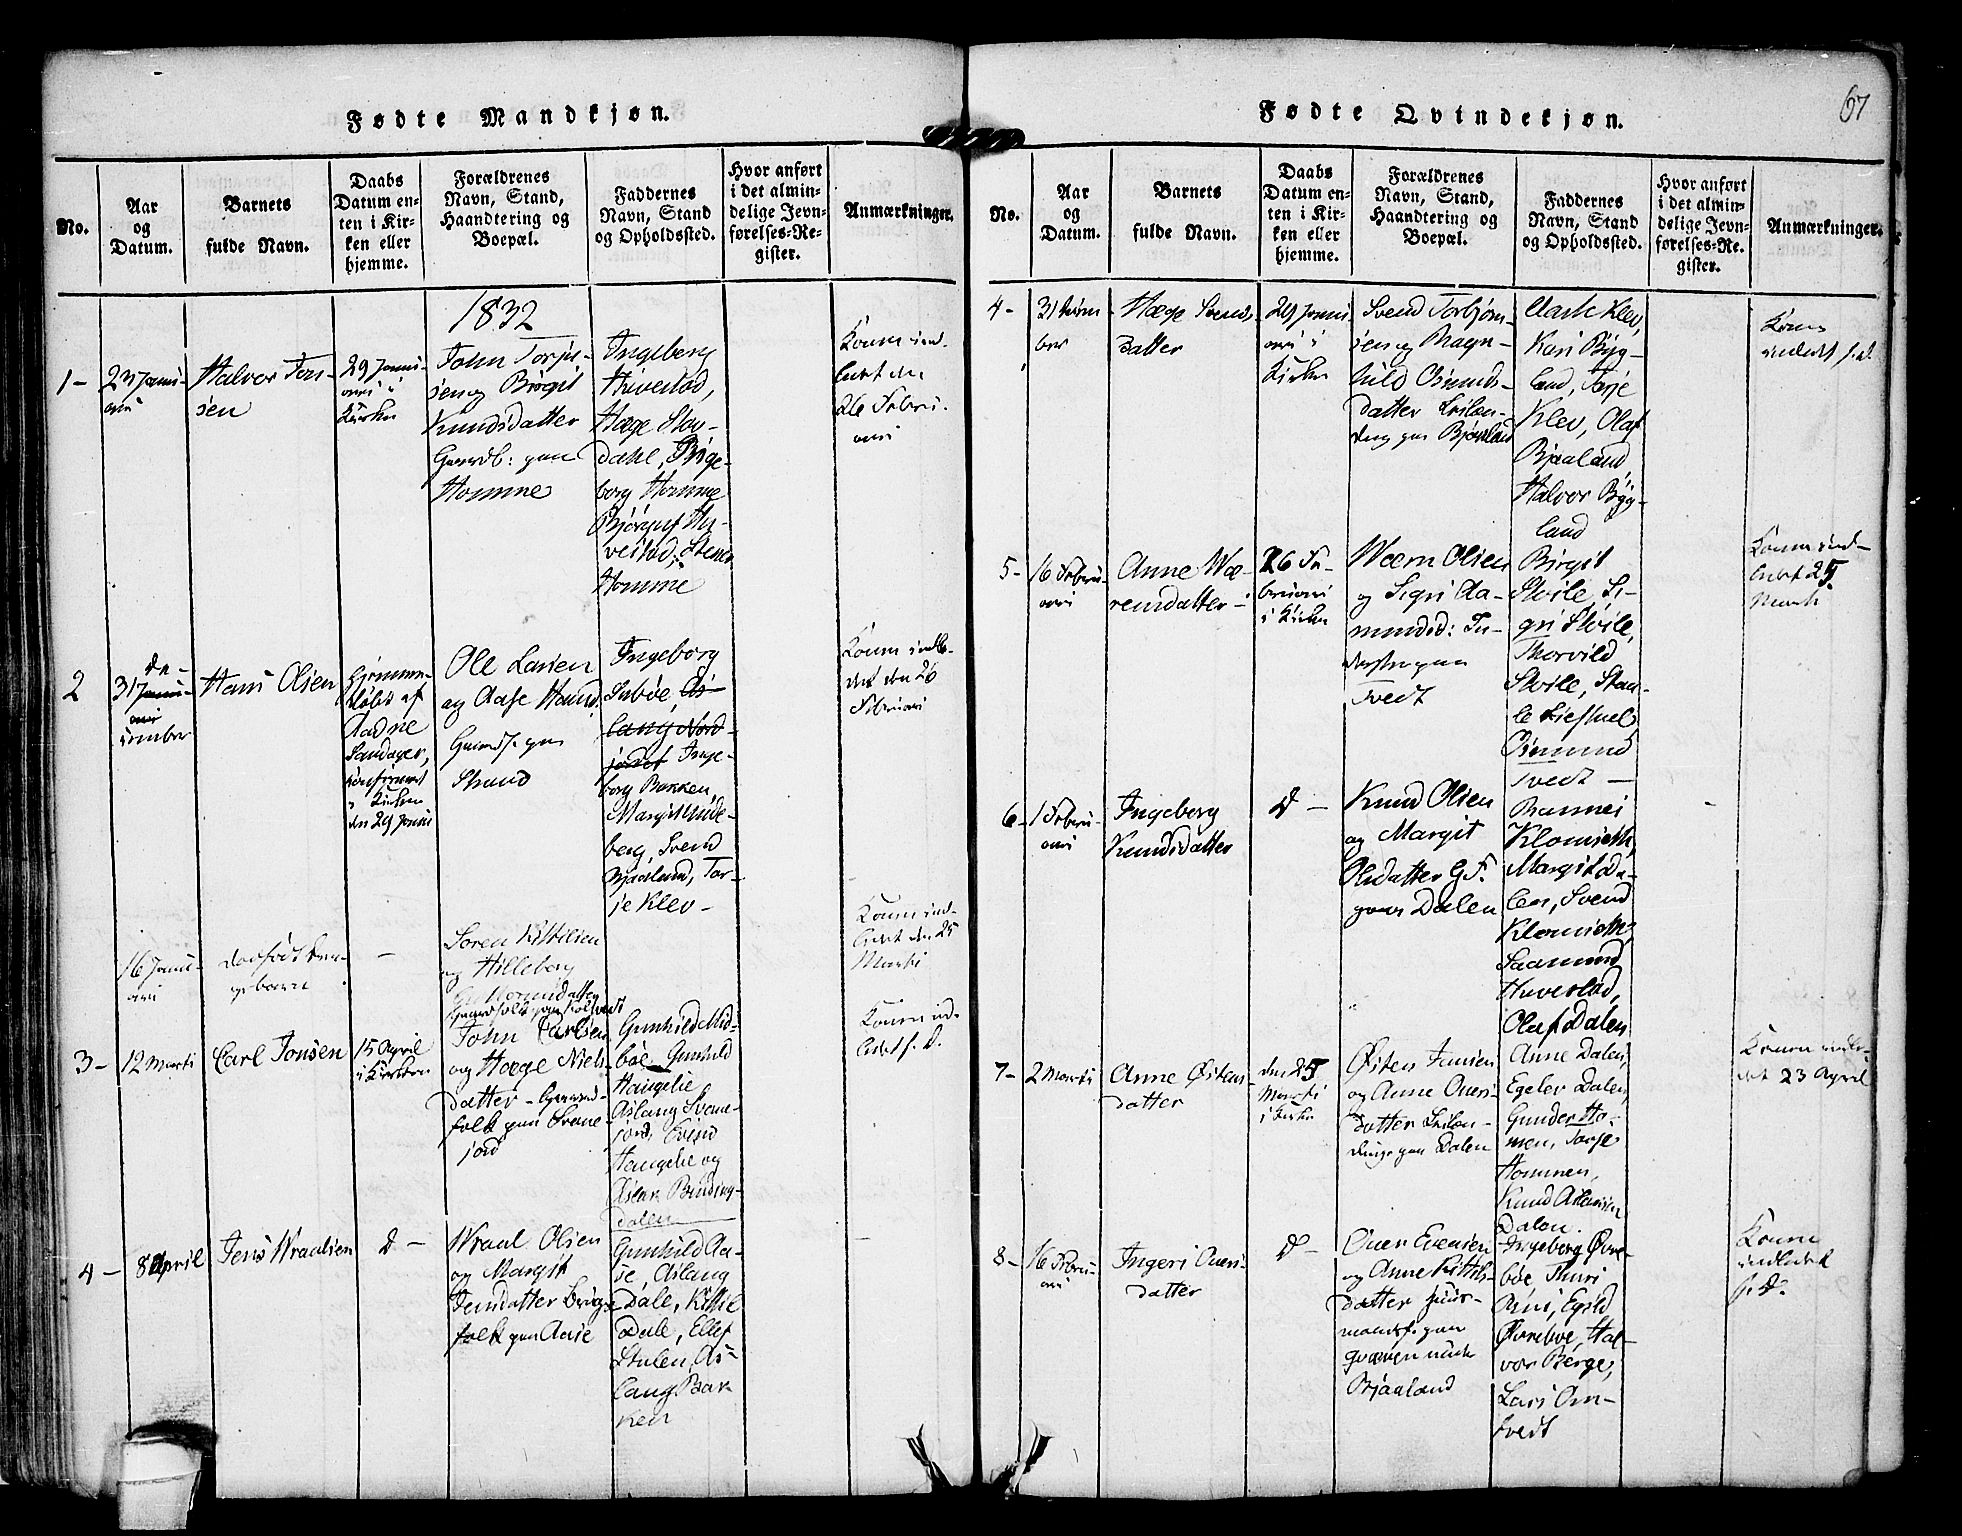 Fødte Mandkjøn.
No.
Aar
og
Datum.
Barnets
fulde Navn.
Daabs
Datum en-
ten i Kir-
ken eller
hjemme.
Forældrenes
Navn, Stand,
Haandtering og
Boepæl.
Faddernes
Navn, Stand
og Opholdssted.
Hvor anført
i det almin-
delige Jevn-
førelses-Re-
gister.
Anmærkninger.
1832
1-
23 Janu-
ari
Halvor Jon-
sen
29 Janu-
ari i
Kirken
John Torju-
sen og Birgit
Knudsdatter
Gaardb: paa
Homme
Ingeborg
Huvestad,
Hæge
Dahl, Inge-
borg Homme
Bjørguf Hu-
vestad,
Homme
Konen ind-
ledet den
26 Febru-
ari
2
31
Hans Olsen
Hjemme-
døbt af
Aadne
Sandager,
confirmert
i Kirken
den 29 Janu
Ole Larsen
og Aase Hansd.
Gaardf. paa
Strand
Ingeborg
Inbøe, As-
laug Nord-
jordet Inge-
borg Bakken,
Margit Linde-
berg, Svend
Bjaaland, Tor-
je Klev-
Konen indle-
det den 26
Februari
16 Janu-
ari
dødfødt dren-
gebarn
-
Søren Kittilsen
og Hilleborg
Guttormsdatter
Konen ind-
ledet den 25
Marti
3-
12 Marti
Carl Jonsen
15 April
i Kirken
John Carlsen
og Hæge Niels-
datter - Gaard-
folk paa Svane-
jord
Gunhild Mid-
bøe Gunhild
Haugelie
Aslaug Svane-
jord, Evind
Haugelie og
Aslak Binding-
dalen
Konen ind-
ledet s. D.
4-
8 April
Jens Wraalsen
d -
Wraal Olsen
og Margit
Jensdatter Bruge-
folk paa Aase
Gunhild Aa-
se, Aslaug
Dale, Kittil
Dale, Ellef
Stulen, As-
laug Bak-
ken
-
Fødte Qvindekjøn.
67
No.
Aar
og
Datum.
Barnets
fulde Navn.
Daabs
Datum en-
ten i Kir-
ken eller
hjemme.
Forældrenes
Navn, Stand,
Haandtering og
Boepæl.
Faddernes
Navn, Stand
og Opholdssted.
Hvor anført
i det almin-
delige Jevn-
førelses-Re-
gister.
Anmærkninger.
4-
31 Decem-
ber
Hæge Svends-
datter
29 Janu-
ari i
Kirken
Svend Torbjørn-
sen og Ragn-
hild Osmunds-
datter Leilæn-
ding paa Bjaaland
Aase Klev,
Kari Byg-
land, Torje
Klev, Olaf
Bjaaland,
Halvor Byg-
land
Konen
indledt s. d.
5-
16 Febru-
ari
Anne Wæ-
remsdatter -
26 Fe-
bruari
i Kirken
Wærn Olsen
og Sigri Aa-
mundsd: In-
derster paa
Tvedt
Birgit
Skvile, Si-
gri Skvile,
Thorvild
Skvile, Staa-
le Liestuel
Osmund
Tvedt -
Konen ind-
ledet 25
Marti
6-
1 Febru-
ari
Ingeborg
Knudsdatter
d -
Knud Olsen
og Margit
Olsdatter G. F.
paa Dalen
Rannei
Klomseth,
Margit Da-
len, Svend
Klomseth,
Saamund
Huvestad,
Olaf Dalen
7-
2 Marti
Anne Østens-
datter
den 25
Marti
i Kirken
Østen Jensen
og Anne Overs-
datter Leilæn-
dinge paa Dalen
Anne Dalen,
Egelev Dalen,
Gunder Ho-
men, Torje
Hommen,
Knud Aslaksen
Dalen.
Konen indle-
det 23 April
8-
16 Febru-
ari
Ingeri Overs-
datter
d -
Over Evensen
og Anne Kittils-
datter Huus-
mandsf. paa
under
Bjaaland
Ingeborg Øvre-
bøe Thuri
Aase, Egild
Øvrebøe, Hal-
vor Berge,
Lars Om-
tvedt
Konen
indledet
s. D.